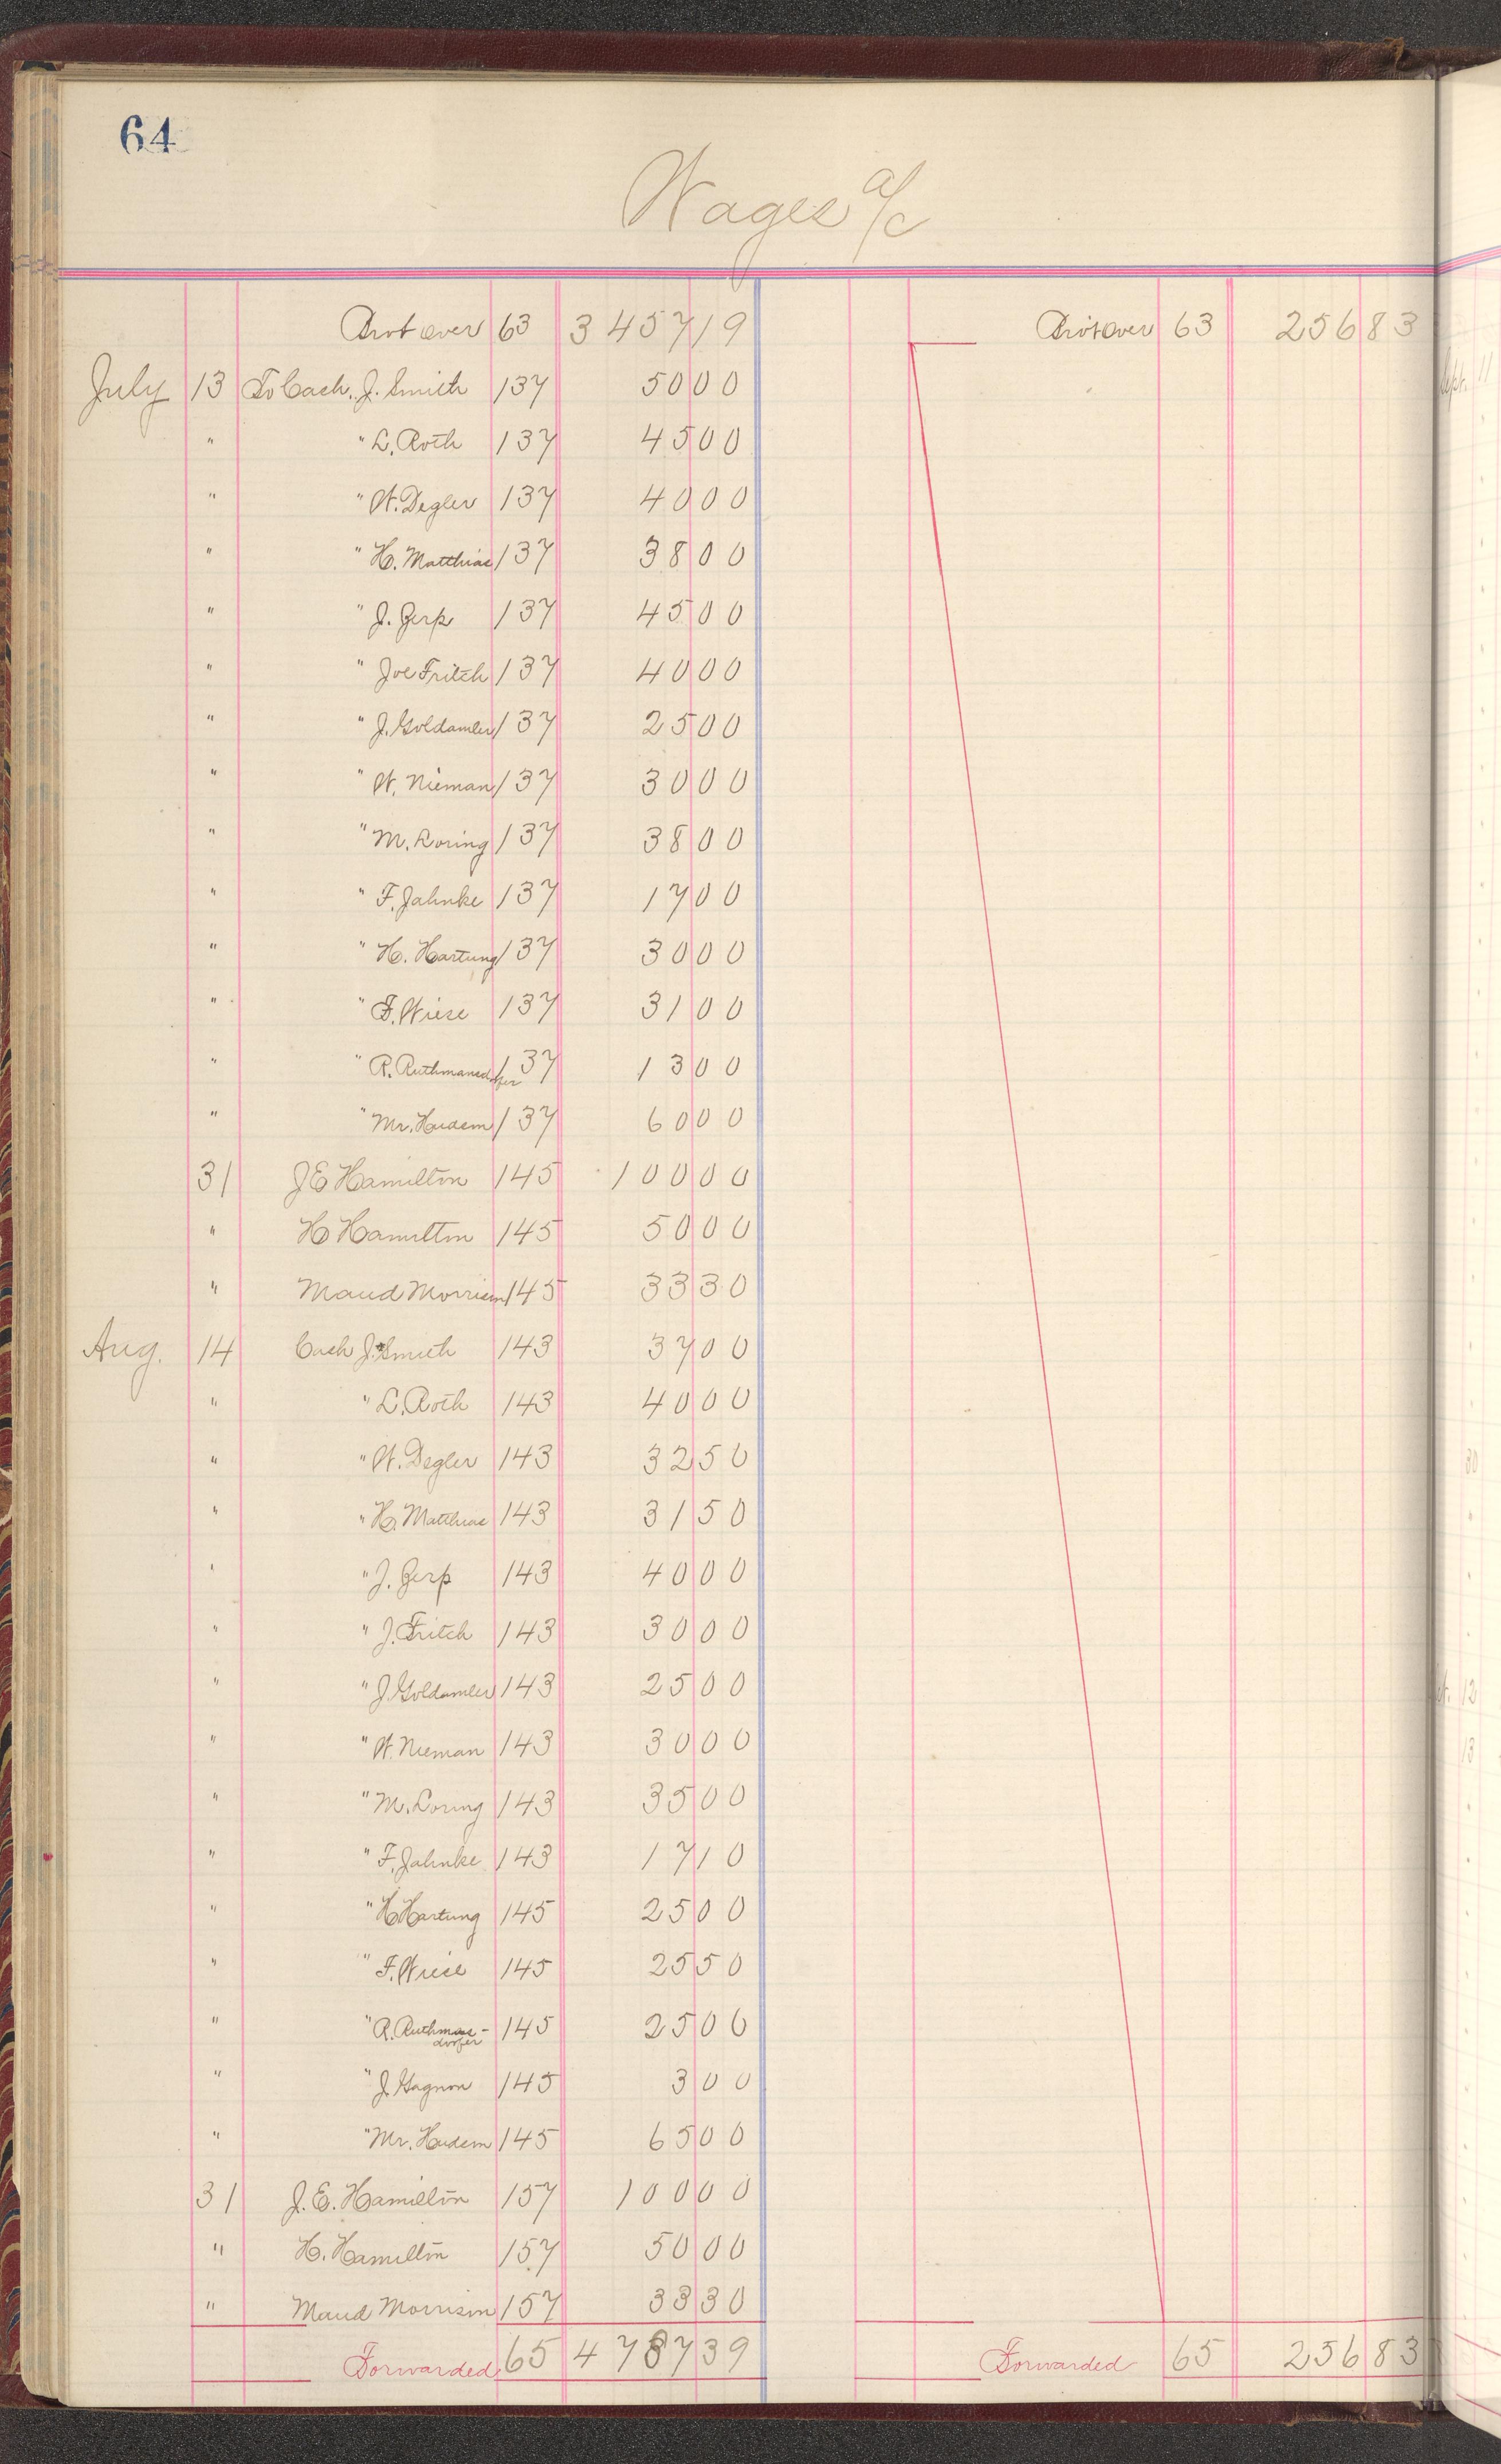 64
Wages a/c
Brot over 63 3457 19 Brot over 63 256 83
July 13 To Cash, J. Smith 137 50 00
" " L. Roth 137 45 00
" " W. Degler 137 40 00
" " H. Matthias 137 38 00
" " J. Gerp 137 45 00
" " Joe Fritch 137 40 00
" " J. Goldamler 137 25 00
" " W. Nieman 137 30 00
" " M. Loring 137 38 00
" " F. Jahnke 137 17 00
" " H. Hartung 137 30 00
" " F. Wiese 137 31 00
" " R. Ruthmansdorfer 137 13 00
" " Mr. 137 60 00
31 J E Hamilton 145 100 00
" H Hamilton 145 50 00
" Maud Morrison 145 33 30
Aug. 14 Cash J. Smith 143 37 00
" " L. Roth 143 40 00
" " W. Degler 143 32 50
" " H. Matthias 143 31 50
" " J. Gerp 143 40 00
" " J. Fritch 143 30 00
" " J. Goldamler 143 25 00
" " W. Nieman 143 30 00
" " M. Loring 143 35 00
" " F. Jahnke 143 17 10
" " H Hartung 145 25 00
" " F. Wiese 145 25 50
" " R. Ruthmans-
dorfer 145 25 00
" " J. Gagnon 145 3 00
" " Mr. 145 65 00
31 J. E. Hamilton 157 100 00
" H. Hamilton 157 50 00
" Maud Morrison 157 33 30
Forwarded 65 4787 39 Forwarded 65 256 83
Sept. 11
30
12
13